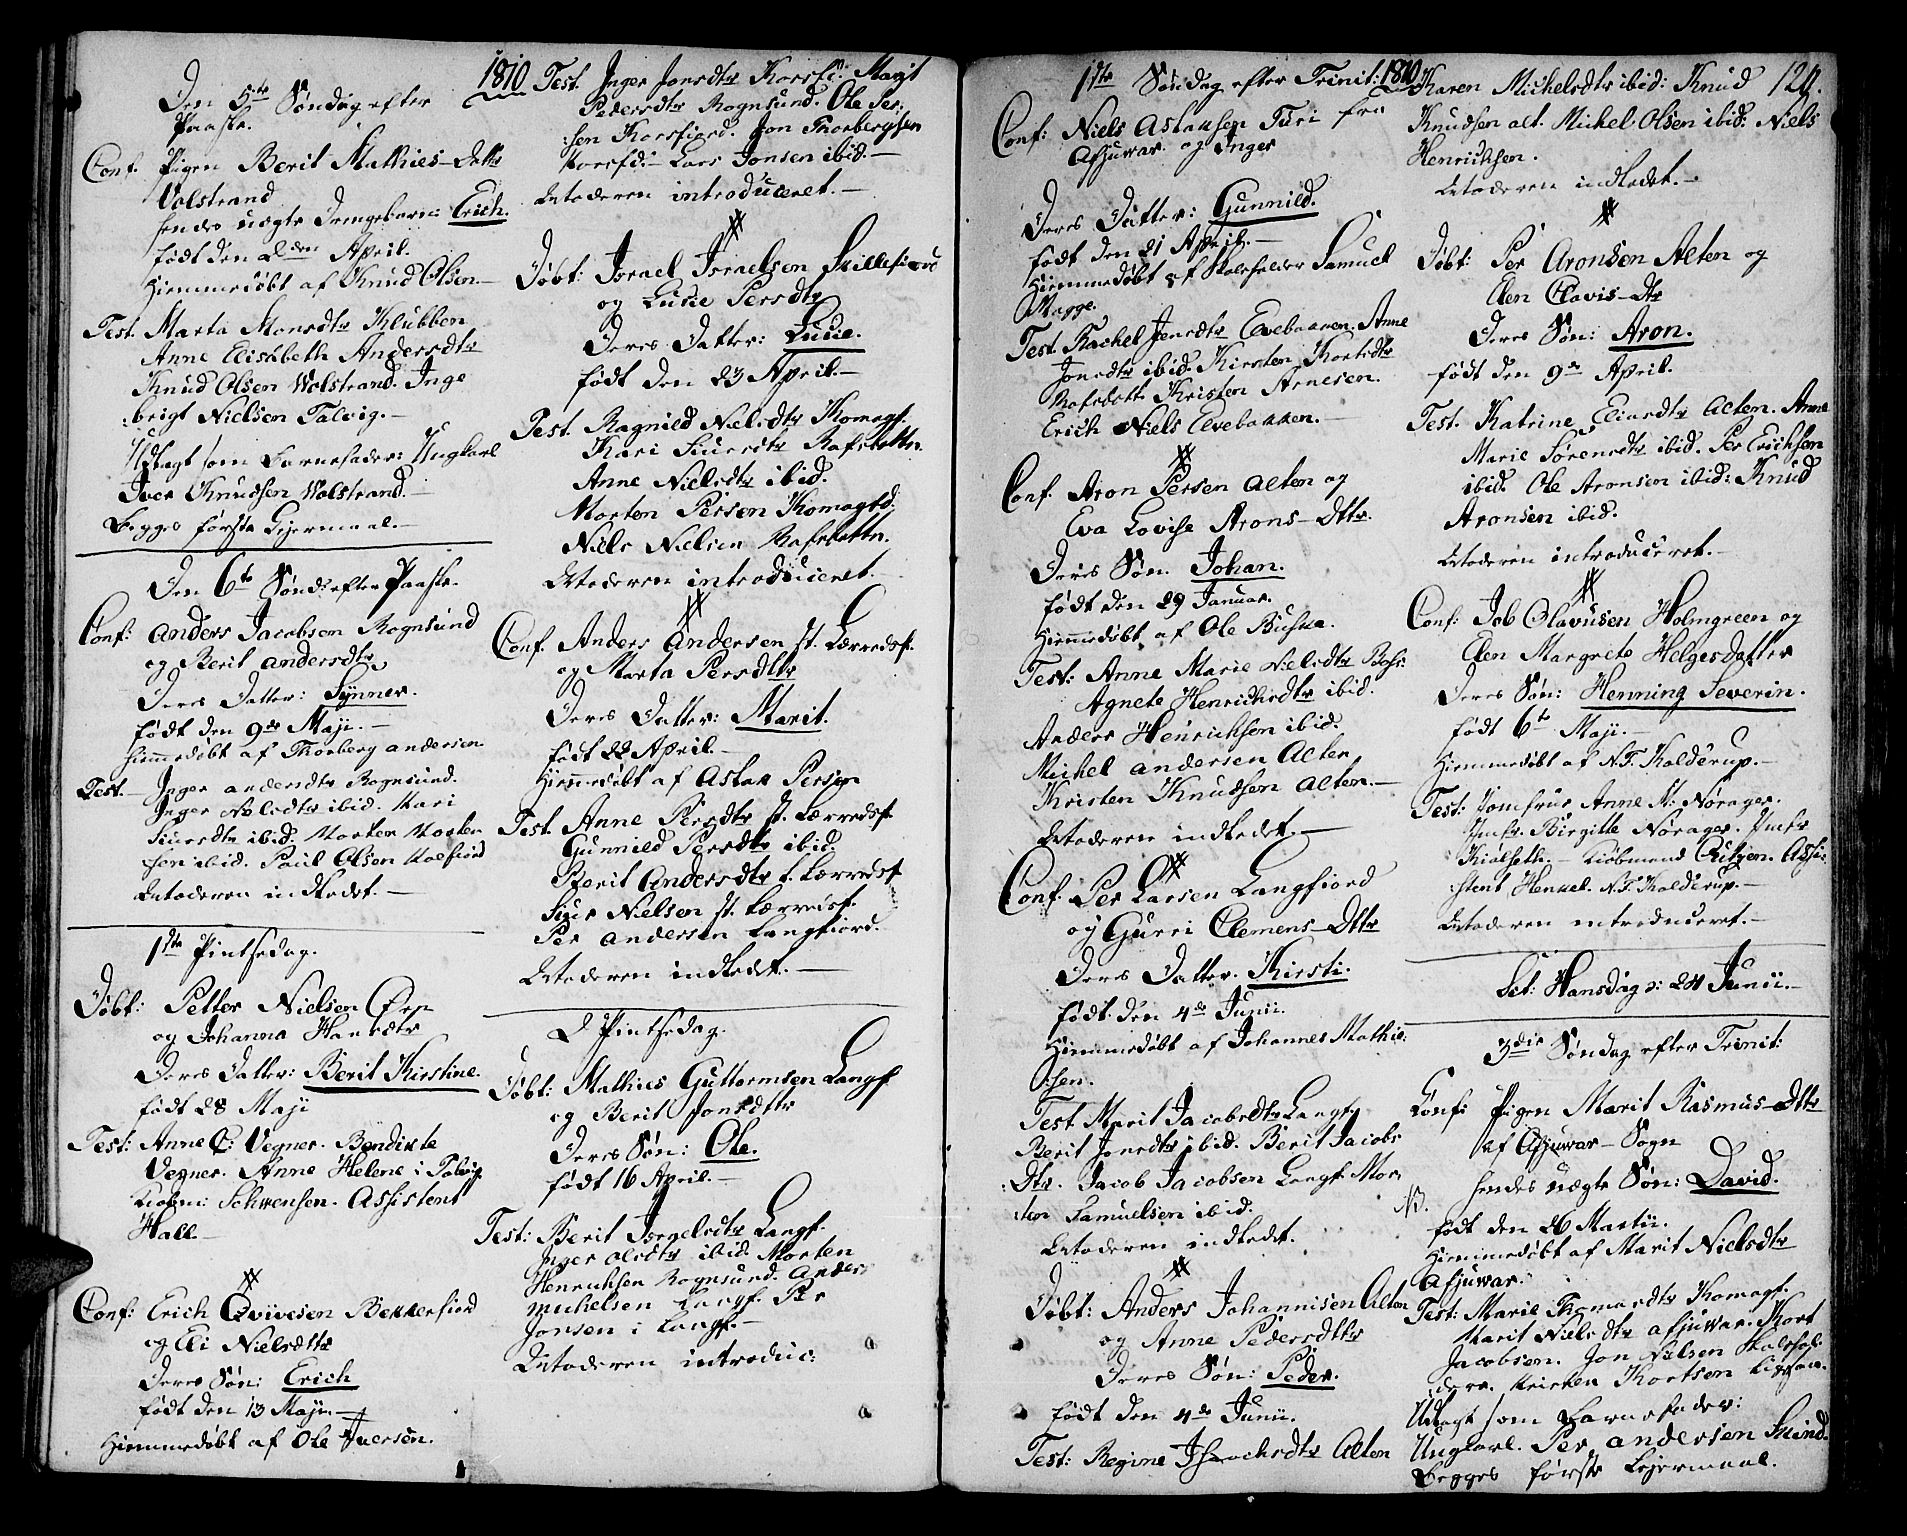 1810
Den 5te Søndag efter
Paaske.
Conf. Pigen Berit Mathies-Datter
Volstrand
hendes uægte Drengebarn: Erich.
født den 2den April.
Hiemmedøbt af Knud Olsen.-
Test. Marta Monsdtr Klubben
Anne Elisabeth Andersdtr
Knud Olsen Wolstrand. Inge
:brigt Nielsen Talvig.-
Udlagt som Barnefader: Ungkarl
Iver Knudsen Wolstrand.-
Begges første Lejermaal.-
Den 6te Sønd: efter Paaske.
Conf: Anders Jacobsen Rognsund
og Berit Andersdtr
Deres Datter: Synner.
født den 9de Maji.-
Hiemmedøbt af Thorberg Andersen.
Test.- Inger Andersdtr Rognsund.
Inger Nielsdtr ibid. Kari
Siursdtr ibid. Morten Morten
sen ibid. Poul Olsen Kolfiord
Betoderen indledet.-
1ste Pintsedag.
Døbt: Petter Nielsen
og Johanna Hansdtr
Deres Datter: Berit Kirstine.
født 28 Maji
Test: Anne C: Vegner. Bendikte
Vegner. Anne Helene i Talvig
Kiøbm: Schwensen. Assistent
Hall.-
Conf: Erich Qvivesen Bekkerfiord
og Eli Nielsdttr
Deres Søn: Erich
født den 13 Maji.-
Hiemmedøbt af Ole Iversen.
Test. Inger Jonsdtr Korsfi: Marit
Pedersdtr Rognsund. Ole Per:
:sen Korsfiord. Jon Thorbergsen
Korsfd:- Lars Jonsen ibid.-
Betoderen introduceret.-
Døbt: Israel Israelsen Lillefiord
og Lucie Persdtr
Deres Datter: Lucie.
født den 23 April.-
Test. Ragnild Nielsdtr Komagf.
Kari Siursdtr Rafsbottn.
Anne Nielsdtr ibid.
Morten Persen Komagfd:
Niels Nielsen Rafsbottn.
Betoderen introduceret.
Conf. Anders Andersen st. Lerredsf.
og Marta Persdttr
Deres Datter: Marit.
født 22 April.-
Hiemmedøbt af Aslak Persen
Test. Anne Persdtr st. Lerredsf
Gunnild Persdtr ibid.
Berit Andersdtr l. Lerredsf
Siur Nielsen st. Lerredsf.
Per Andersen Langfiord.
Betoderen indledet.-
2 Pintsedag.
Døbt: Mathies Guttormsen Langf
og Berit Jonsdttr
Deres Søn: Ole.
født 16 April.-
Test: Berit Isralsdtr Langf.
Inger Olsdtr ibid. Morten
Henrichsen Rognsund. Anders
Michelsen Langf. Per
Jonsen i Langf.-
Betoderen introduc:
1810
1ste Søndag efter Trinit:
Conf: Niels Aslaksen Turi fra
Afjuvar. og Inger
Deres Datter: Gunnild.
født den 21 April.-
Hiemmedøbt af Skoleholder Samuel
Magge.
Test. Rachel Jensdtr Elvebakken. Anne
Jonsdtr ibid. Kirsten Kortsdtr
Rafsbottn Kristen Arnesen.
Erich Niels Elvebakken.-
Conf. Aron Persen Alten og
Eva Lovise Arons-Dttr.
Deres Søn. Johan.
født den 29 Januar.
Hiemmedøbt af Ole Buska.
Test: Anne Marie Nielsdtr
Agnete Henrichsdtr ibid.
Anders Henrichsen ibid.
Michel Andersen Alten
Kristen Knudsen Alten.-
Betoderen indledet.-
Conf. Per Larsen Langfiord
og Gurri Clemens-Dttr
Deres Datter. Kirsti.
født den 4de Junii.
Hiemmedøbt af Johannes Mathie:
:sen.
Test Marit Jacobsdtr Langf:
Berit Jonsdtr ibid. Berit Jacobs
:Dtr. Jacob Jacobsen Langf. Mor:
:ten Samuelsen ibid.
Betoderen indledet.
Døbt: Anders Johannisen Alten
og Anne Pedersdttr
Deres Søn: Peder.
født den 4de Junii.
Test: Regine Isachsdtr Alten
120.
Karen Michelsdtr ibid: Knud
Knudsen alt. Michel Olsen ibid: Niels
Henrichsen.
Betoderen indledet.-
Døbt: Per Aronsen Alten og
Elen Clavis-Dtr
Deres Søn: Aron.
født den 9de April.
Test. Katrine Eliasdtr Alten. Anne
Marie Sørensdtr ibid. Per Erichsen
ibid. Ole Aronsen ibid: Knud
Aronsen ibid.
Betoderen introduceret.-
Conf: Job Olavusen Holmgreen og
Elen Margrete Helgesdatter
Deres Søn: Henning Severin.
født 6te Maji.-
Hiemmedøbt af N.F. Kolderup.-
Test: Jomfrue Anne M: Nørager.
Jmfr. Birgitte Nørager. Jmfr
Kiølseth.- Kiøbmand Culzen. Assi:
:stent Henkel. N.F. Kolderup.-
Betoderen introduceret.-
Sct: Hansdag d: 24 Junii.-
3die Søndag efter Trinit:
Conf: Pigen Marit Rasmus-Dttr
af Afjuvar-Sogn
hendes uægte Søn: David.
NB.
født den 26 Martii.
Hiemmedøbt af Marit Nielsdtr
Afjuvar.
Test: Marie Thomasdtr Komagf.
Marit Nielsdtr Afjuvar. Kort
Jacobsen. Jon Nielsen Skolehol:
:der. Kirsten Kortsen
Udlagt som Barnefader:
Ungkarl. Per Andersen
Begges første Lejermaal.